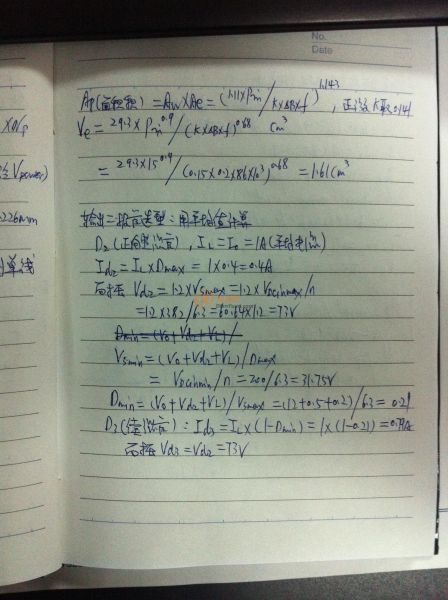 No.
Date
Ap(面积积) = Aw×Ae = (1.11×Pin/K×ΔB×f)^1.143, 正激K取0.141
Ve = 29.3×Pin^0.9/(K×ΔB×f)^0.68 cm³
= 29.3×15^0.9/(0.15×0.2×86×10³)^0.68 = 1.61cm³
输出二极管选型:用平均值计算
D2(正向整流管), IL=Io=1A(平均电流)
Id2=IL×Dmax=1×0.4=0.4A
而耐压 Vd2=1.2×Vsmax=1.2×VDCinmax/n
=1.2×382/6.3=60.64×1.2=73V
Dmin=(Vo+Vd2+VL)/
Vsmin=(Vo+Vd2+VL)/Dmax
= VDCinmin/n=200/6.3=31.75V
Dmin=(Vo+Vd2+VL)/Vsmax=(12+0.5+0.2)/63=0.21
D3(续流管):Id3=IL×(1-Dmin)=1×(1-0.21)=0.79A
而耐压 Vd3=Vd2=73V
×Np
Vpower)
0.226mm
单线